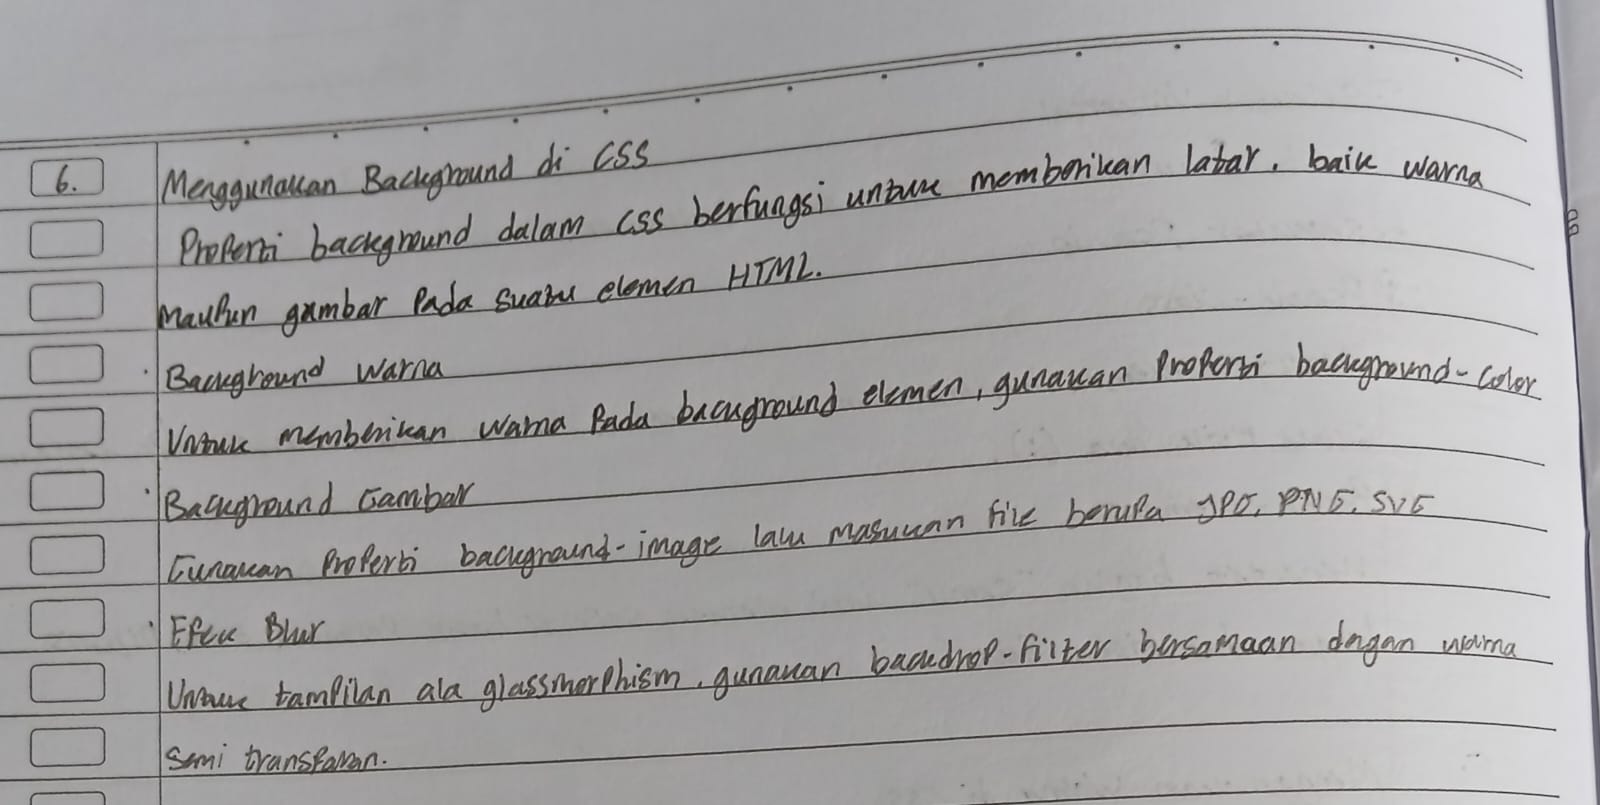 6. Menggunakan Background di CSS
Properti background dalam CSS berfungsi untuk memberikan latar, baik warna
maupun gambar pada suatu elemen HTML.
· Background Warna
Untuk memberikan warna pada background elemen, gunakan properti background-color
· Background Gambar
Gunakan properti background-image lalu masukan file berupa JPG, PNG, SVG
· Efek Blur
Untuk tampilan ala glassmorphism, gunakan backdrop-filter bersamaan dngan warna
semi transparan.